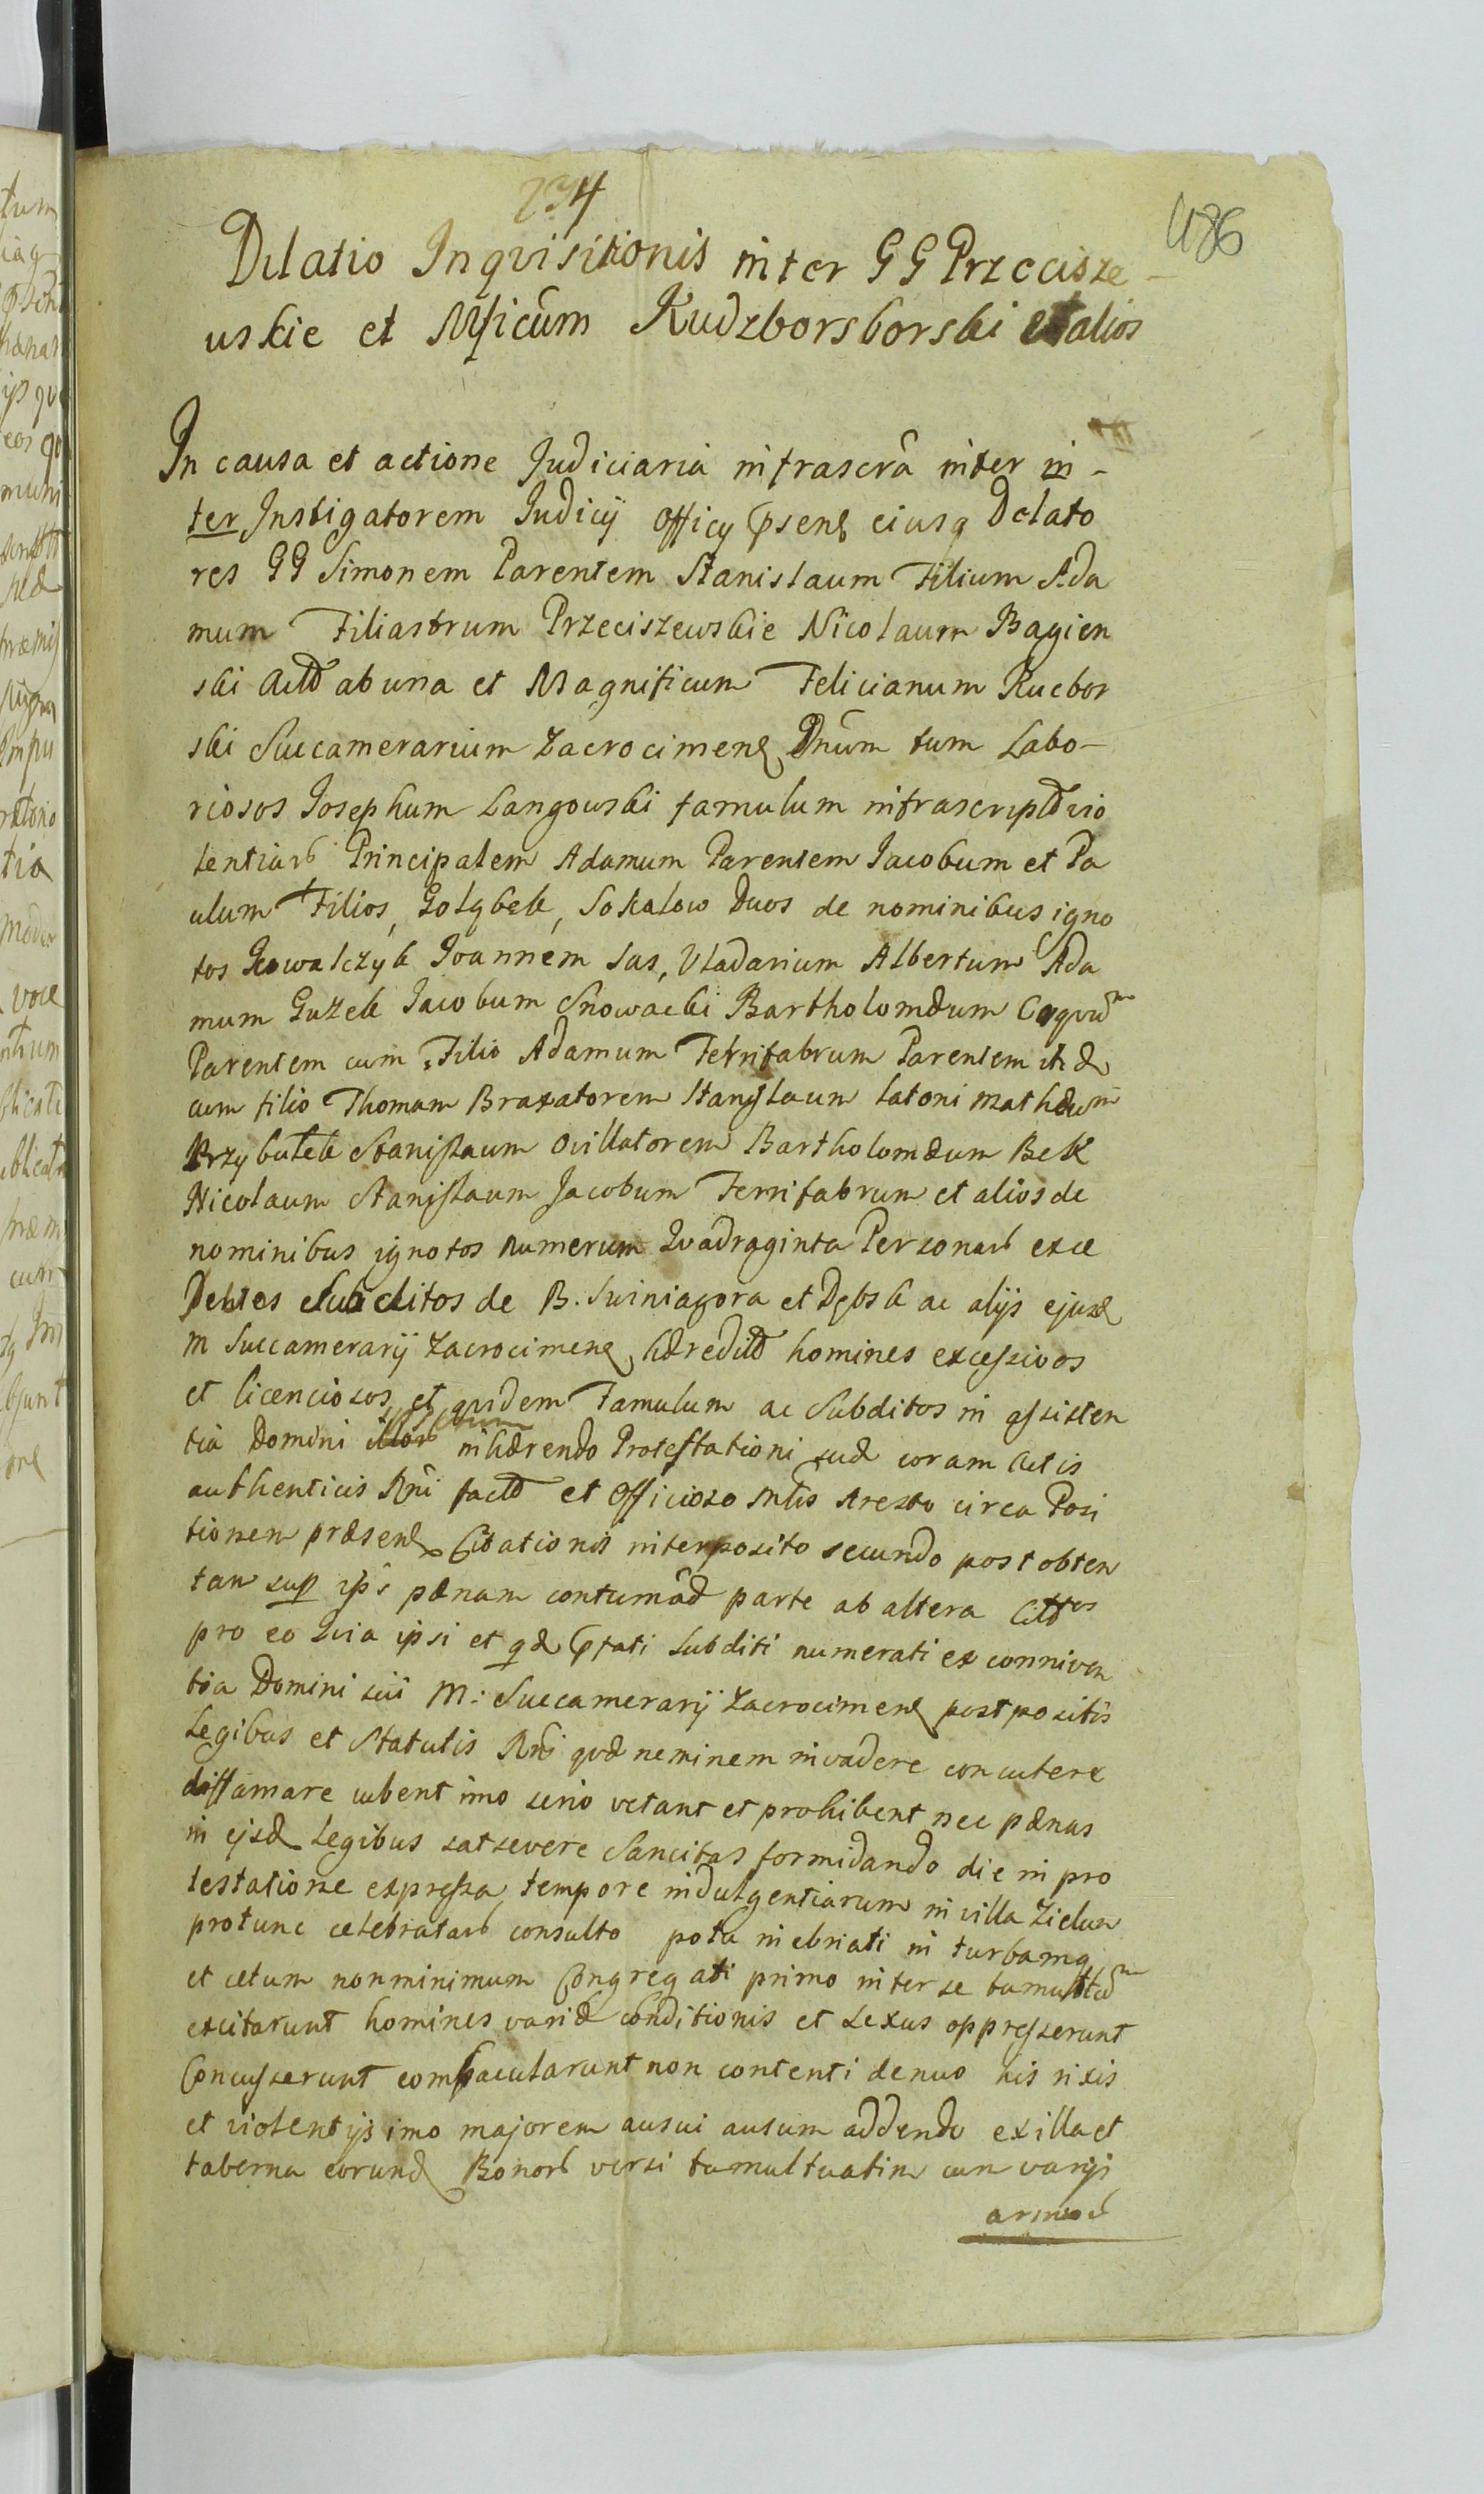 234
486
Dilatio Inqvisitionis inter GG Przecisze-
uskie et Mficum Kudzborsborski et alios
In causa et actione Judiciaria infrascrâ inter in-
ter Instigatorem Judicy officy eiusq Delato
res GG Simonem Parentem Stanislaum Filium Ada
mum Filiastrum Przeciszewskie Nicolaum Bagien
ski ab una et Magnificum Felicianum Kucbor
ski Succamerarium Zacrocimen Dnûm tum Labo-
riosos Josephum Langowski famulum infrascript vio
lentiar Principalem Adamum Parentem Jacobum et Pa
ulum Filios, Golębek, Sokalow Duos de nominibus igno
tos Kowalczyk Joannem Sas, Vladarium Albertum Ada
mum Guzek Jacobum Snowacki Bartholomæum
Parentem cum Filio Adamum Ferrifabrum Parentem
cum filio Thomam Braxatorem Stanislaum Latoni Mathæum
Przybutek Stanislaum Ovillatorem Bartholomæum Bek
Nicolaum Stanislaum Jacobum Ferrifabrum et alios de
nominibus ignotos numerum Qvadraginta Personar exce
Dentes Subditos de B. Swiniagora et Dębsk ac alijs ejusd
M Succamerarij Zacrocimen hæredit homines excessivos
et licenciosos et qvidem Famulum ac Subditos in assisten
tia Domini inhærendo Protestationi suæ coram Actis
authenticis Rni fact et Officioso Mtis Aresto circa Posi
tionem præsen Citationis interposito secundo post obten
tam sup ips pænam contumâc parte ab altera Citttos
pro eo Qvia ipsi et qd pfati subditi numerati ex conniven
tia Domini sui M: Succamerarij Zacrocimen postpositis
Legibus et Statutis Rni qvæ neminem invadere concutere
diffamare iubent imo serio vetant et prohibent nec pænas
in ejsd Legibus sat severe Sancitas formidando die in pro
testatione expressa tempore indulgentiarum in villa Zielun
protunc celebratar consulto potu inebriati in turbamq
et cætum nonminimum Congregati primo inter se tumultum
excitarunt homines variæ Conditionis et sexus oppresserunt
Concusserunt non contenti denuo his rixis
et violentijs imo majorem ausui ausum addendo ex illa et
taberna eorund Bonor versi tumultuatim cum varijs
armor